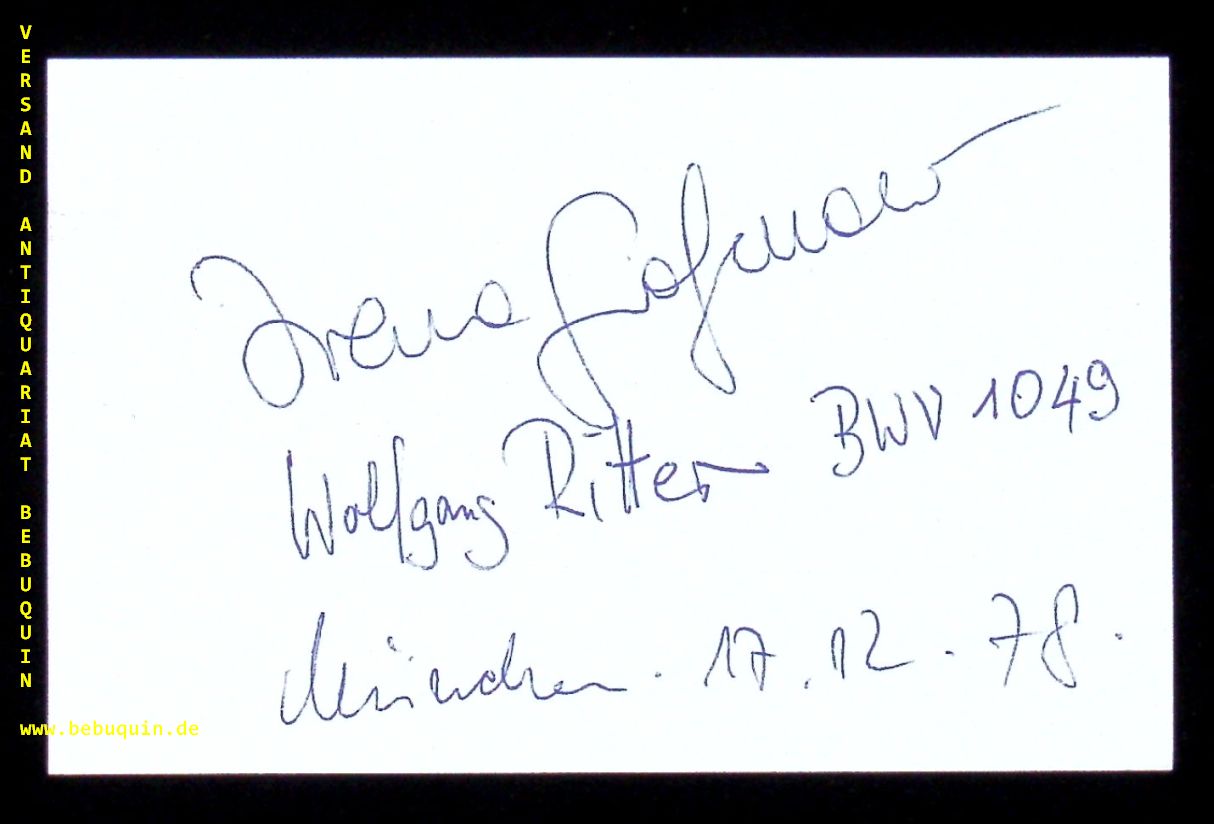 VERSAND ANTIQUARIAT BEBUQUIN
Irena Grafenauer
Wolfgang Ritter BWV 1049
München. 17.12.78.
www.bebuquin.de